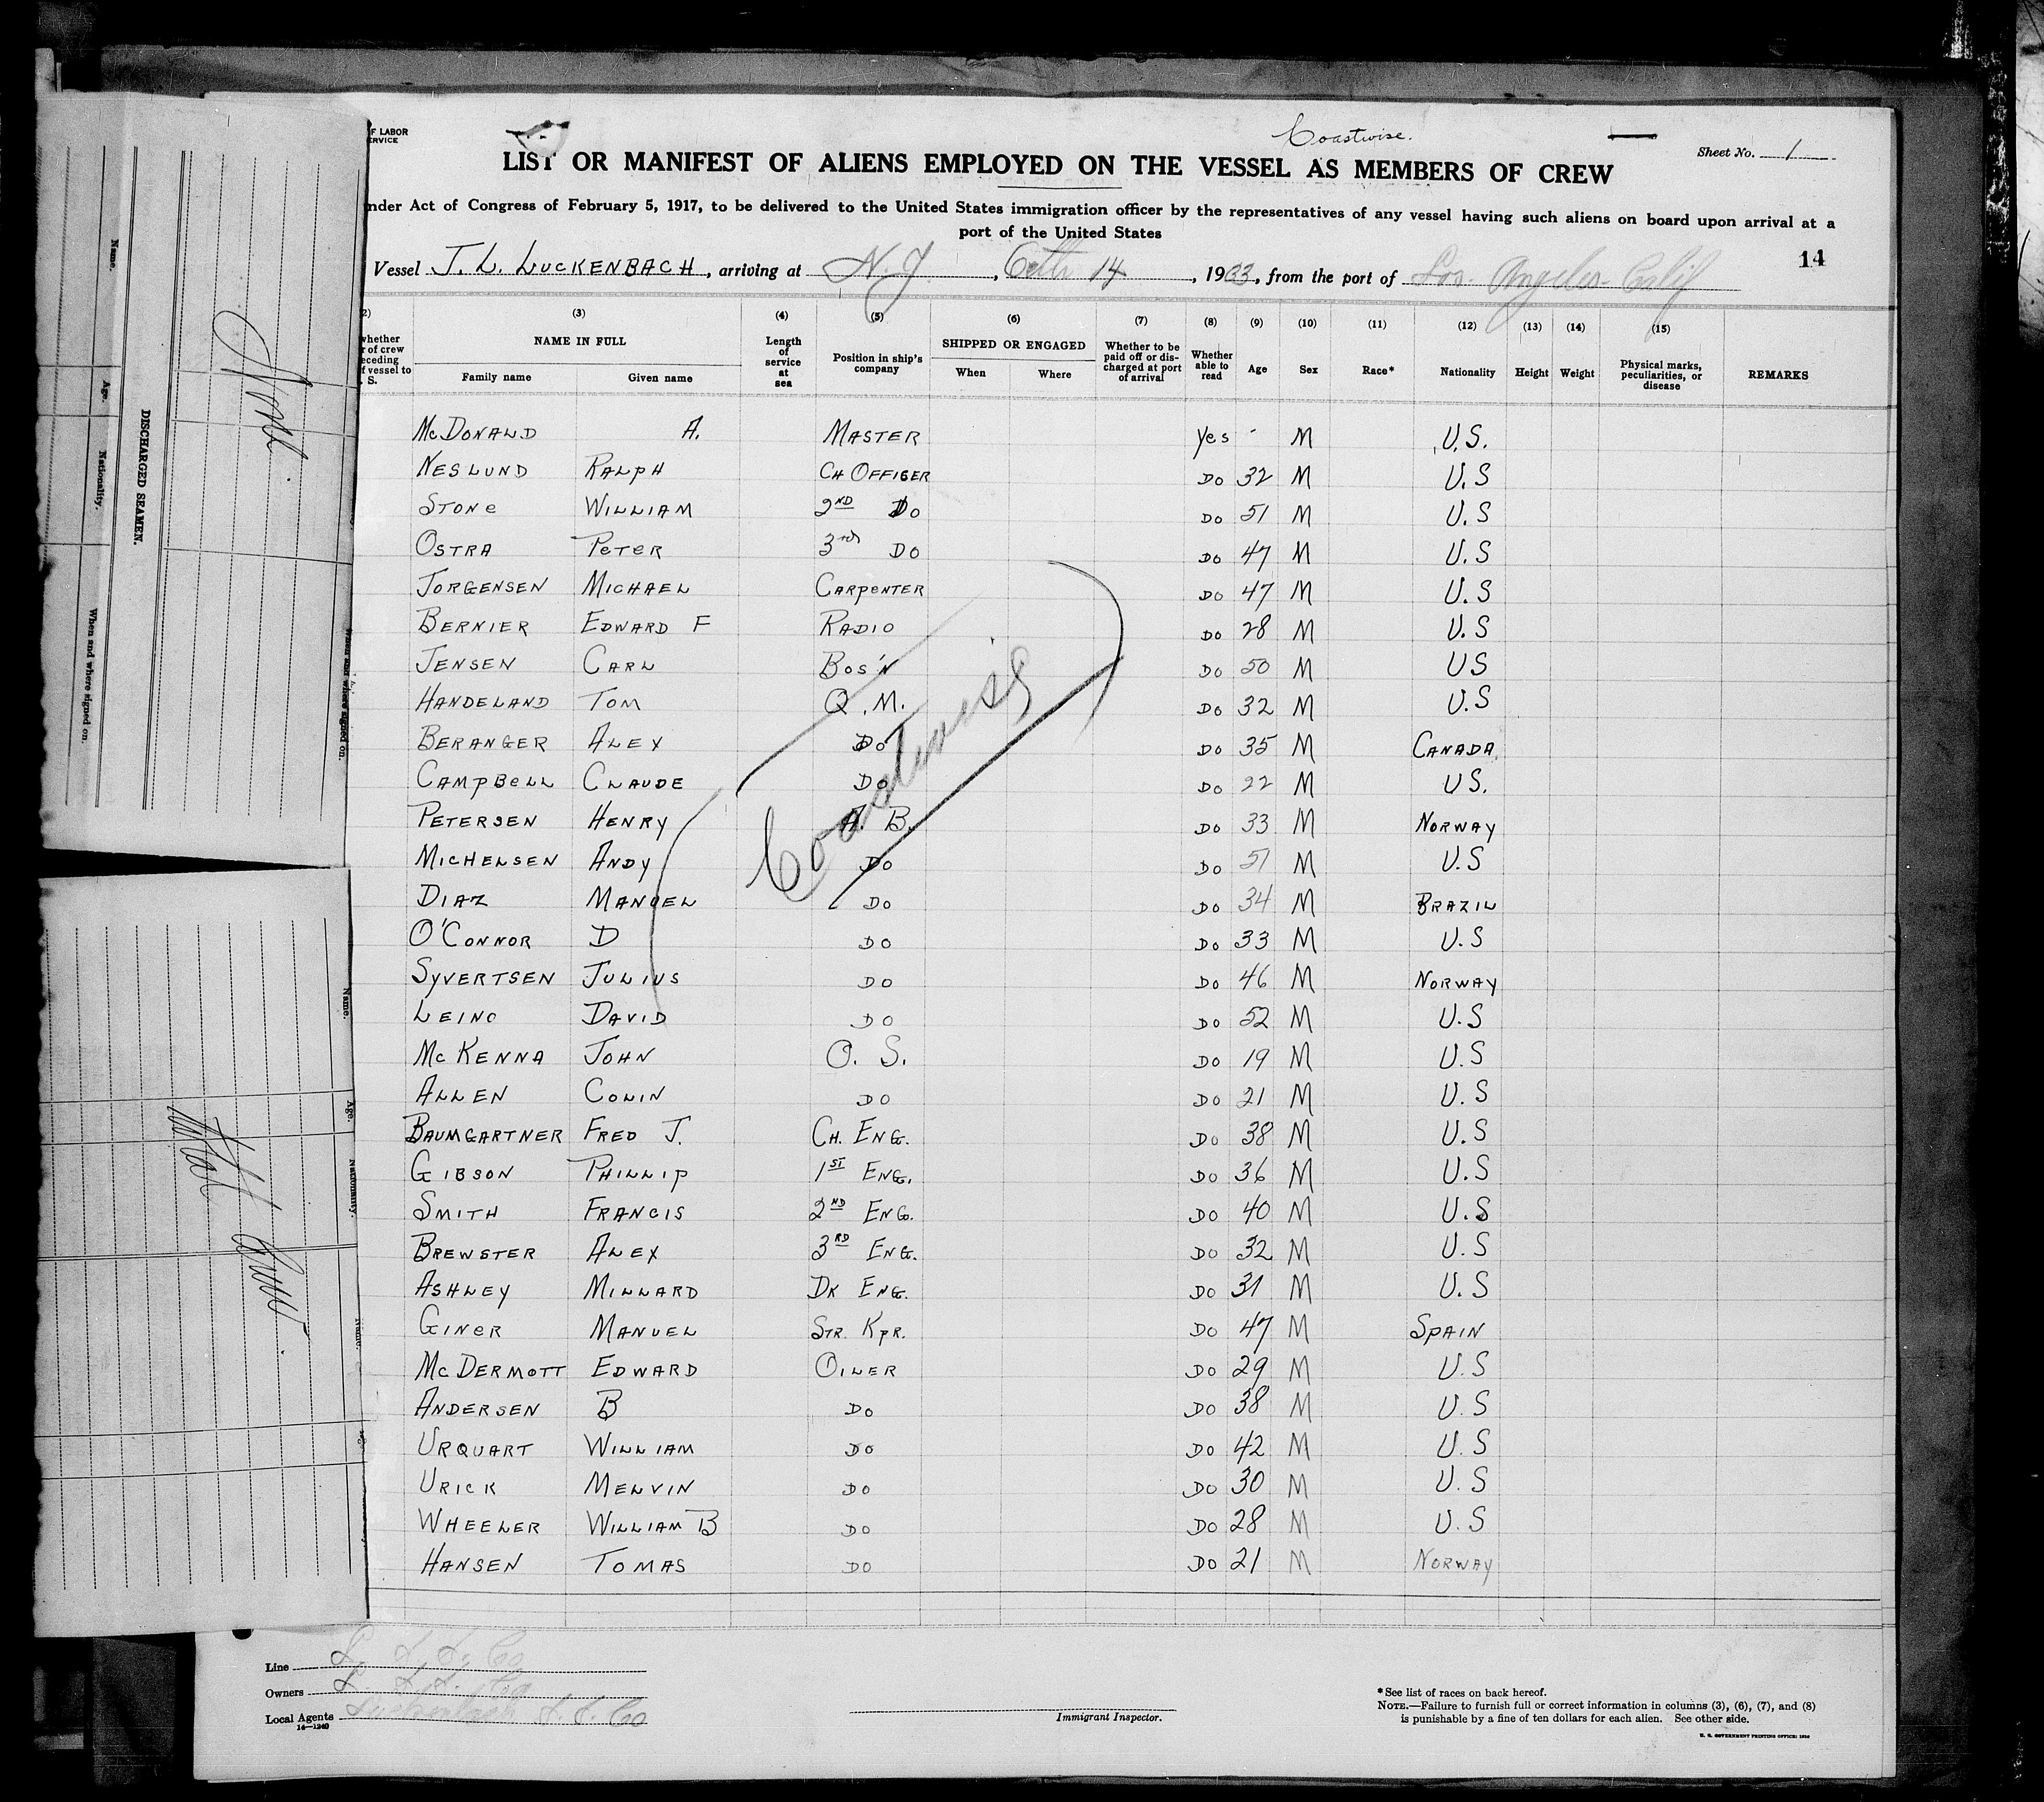 F LABOR
ERVICE
Coastwise.
Sheet No. 1
LIST OR MANIFEST OF ALIENS EMPLOYED ON THE VESSEL AS MEMBERS OF CREW
nder Act of Congress of February 5, 1917, to be delivered to the United States immigration officer by the representatives of any vessel having such aliens on board upon arrival at a
port of the United States
14
Vessel J. L. LUCKENBACH, arriving at N.Y, 14, 1933, from the port of Los Angeles Calif
2) (3) (4) (5) (6) (7) (8) (9) (10) (11) (12) (13) (14) (15)
whether r of crew eceding f vessel to . S.
NAME IN FULL
Family name Given name
Length of service at sea
Position in ship's company
SHIPPED OR ENGAGED
When Where
Whether to be paid off or discharged at port of arrival
Whether able to read
Age Sex Race* Nationality Height Weight
Physical marks, peculiarities, or disease
REMARKS
McDONALD A. MASTER Yes - M U.S.
NESLUND RALPH CH OFFISER DO 32 M U.S
STONE WILLIAM 2ND DO DO 51 M U.S
OSTRA PETER 3rd DO DO 47 M U.S
JORGENSEN MICHAEL CARPENTER DO 47 M U.S
BERNIER EDWARD F RADIO DO 28 M U.S
JENSEN CARL BOS'N DO 50 M US
HANDELAND TOM Q.M. DO 32 M U.S
BERANGER ALEX DO DO 35 M CANADA
CAMPBELL CLAUDE DO DO 22 M US.
PETERSEN HENRY A. B. DO 33 M NORWAY
MICHELSEN ANDY DO DO 51 M U.S
DIAZ MANUEL DO DO 34 M BRAZIL
O'CONNOR D DO DO 33 M U.S
SYVERTSEN JULIUS DO DO 46 M NORWAY
LEINO DAVID DO DO 52 M U.S
McKENNA JOHN O. S. DO 19 M U.S
ALLEN COLIN DO DO 21 M U.S
BAUMGARTNER FRED J. CH. ENG. DO 38 M U.S
GIBSON PHILLIP 1ST ENG. DO 36 M U.S
SMITH FRANCIS 2ND ENG. DO 40 M U.S
BREWSTER ALEX 3RD ENG. DO 32 M U.S
ASHLEY MILLARD DK ENG. DO 31 M U.S
GINER MANUEL STR. KPR. DO 47 M SPAIN
McDERMOTT EDWARD OILER DO 29 M U.S
ANDERSEN B DO DO 38 M U.S
URQUART WILLIAM DO DO 42 M U.S
URICK MELVIN DO DO 30 M U.S
WHEELER WILLIAM B DO DO 28 M U.S
HANSEN TOMAS DO DO 21 M NORWAY
Coastwise
Line L. S. S. Co
Owners L. S. S. Co
Local Agents Luckenbach S. S. Co
14—1240
Immigrant Inspector.
*See list of races on back hereof.
NOTE.—Failure to furnish full or correct information in columns (3), (6), (7), and (8)
is punishable by a fine of ten dollars for each alien. See other side.
DISCHARGED SEAMEN.
Name.
Age.
Nationality.
When and where signed on.
None
Name.
Age.
Nationality.